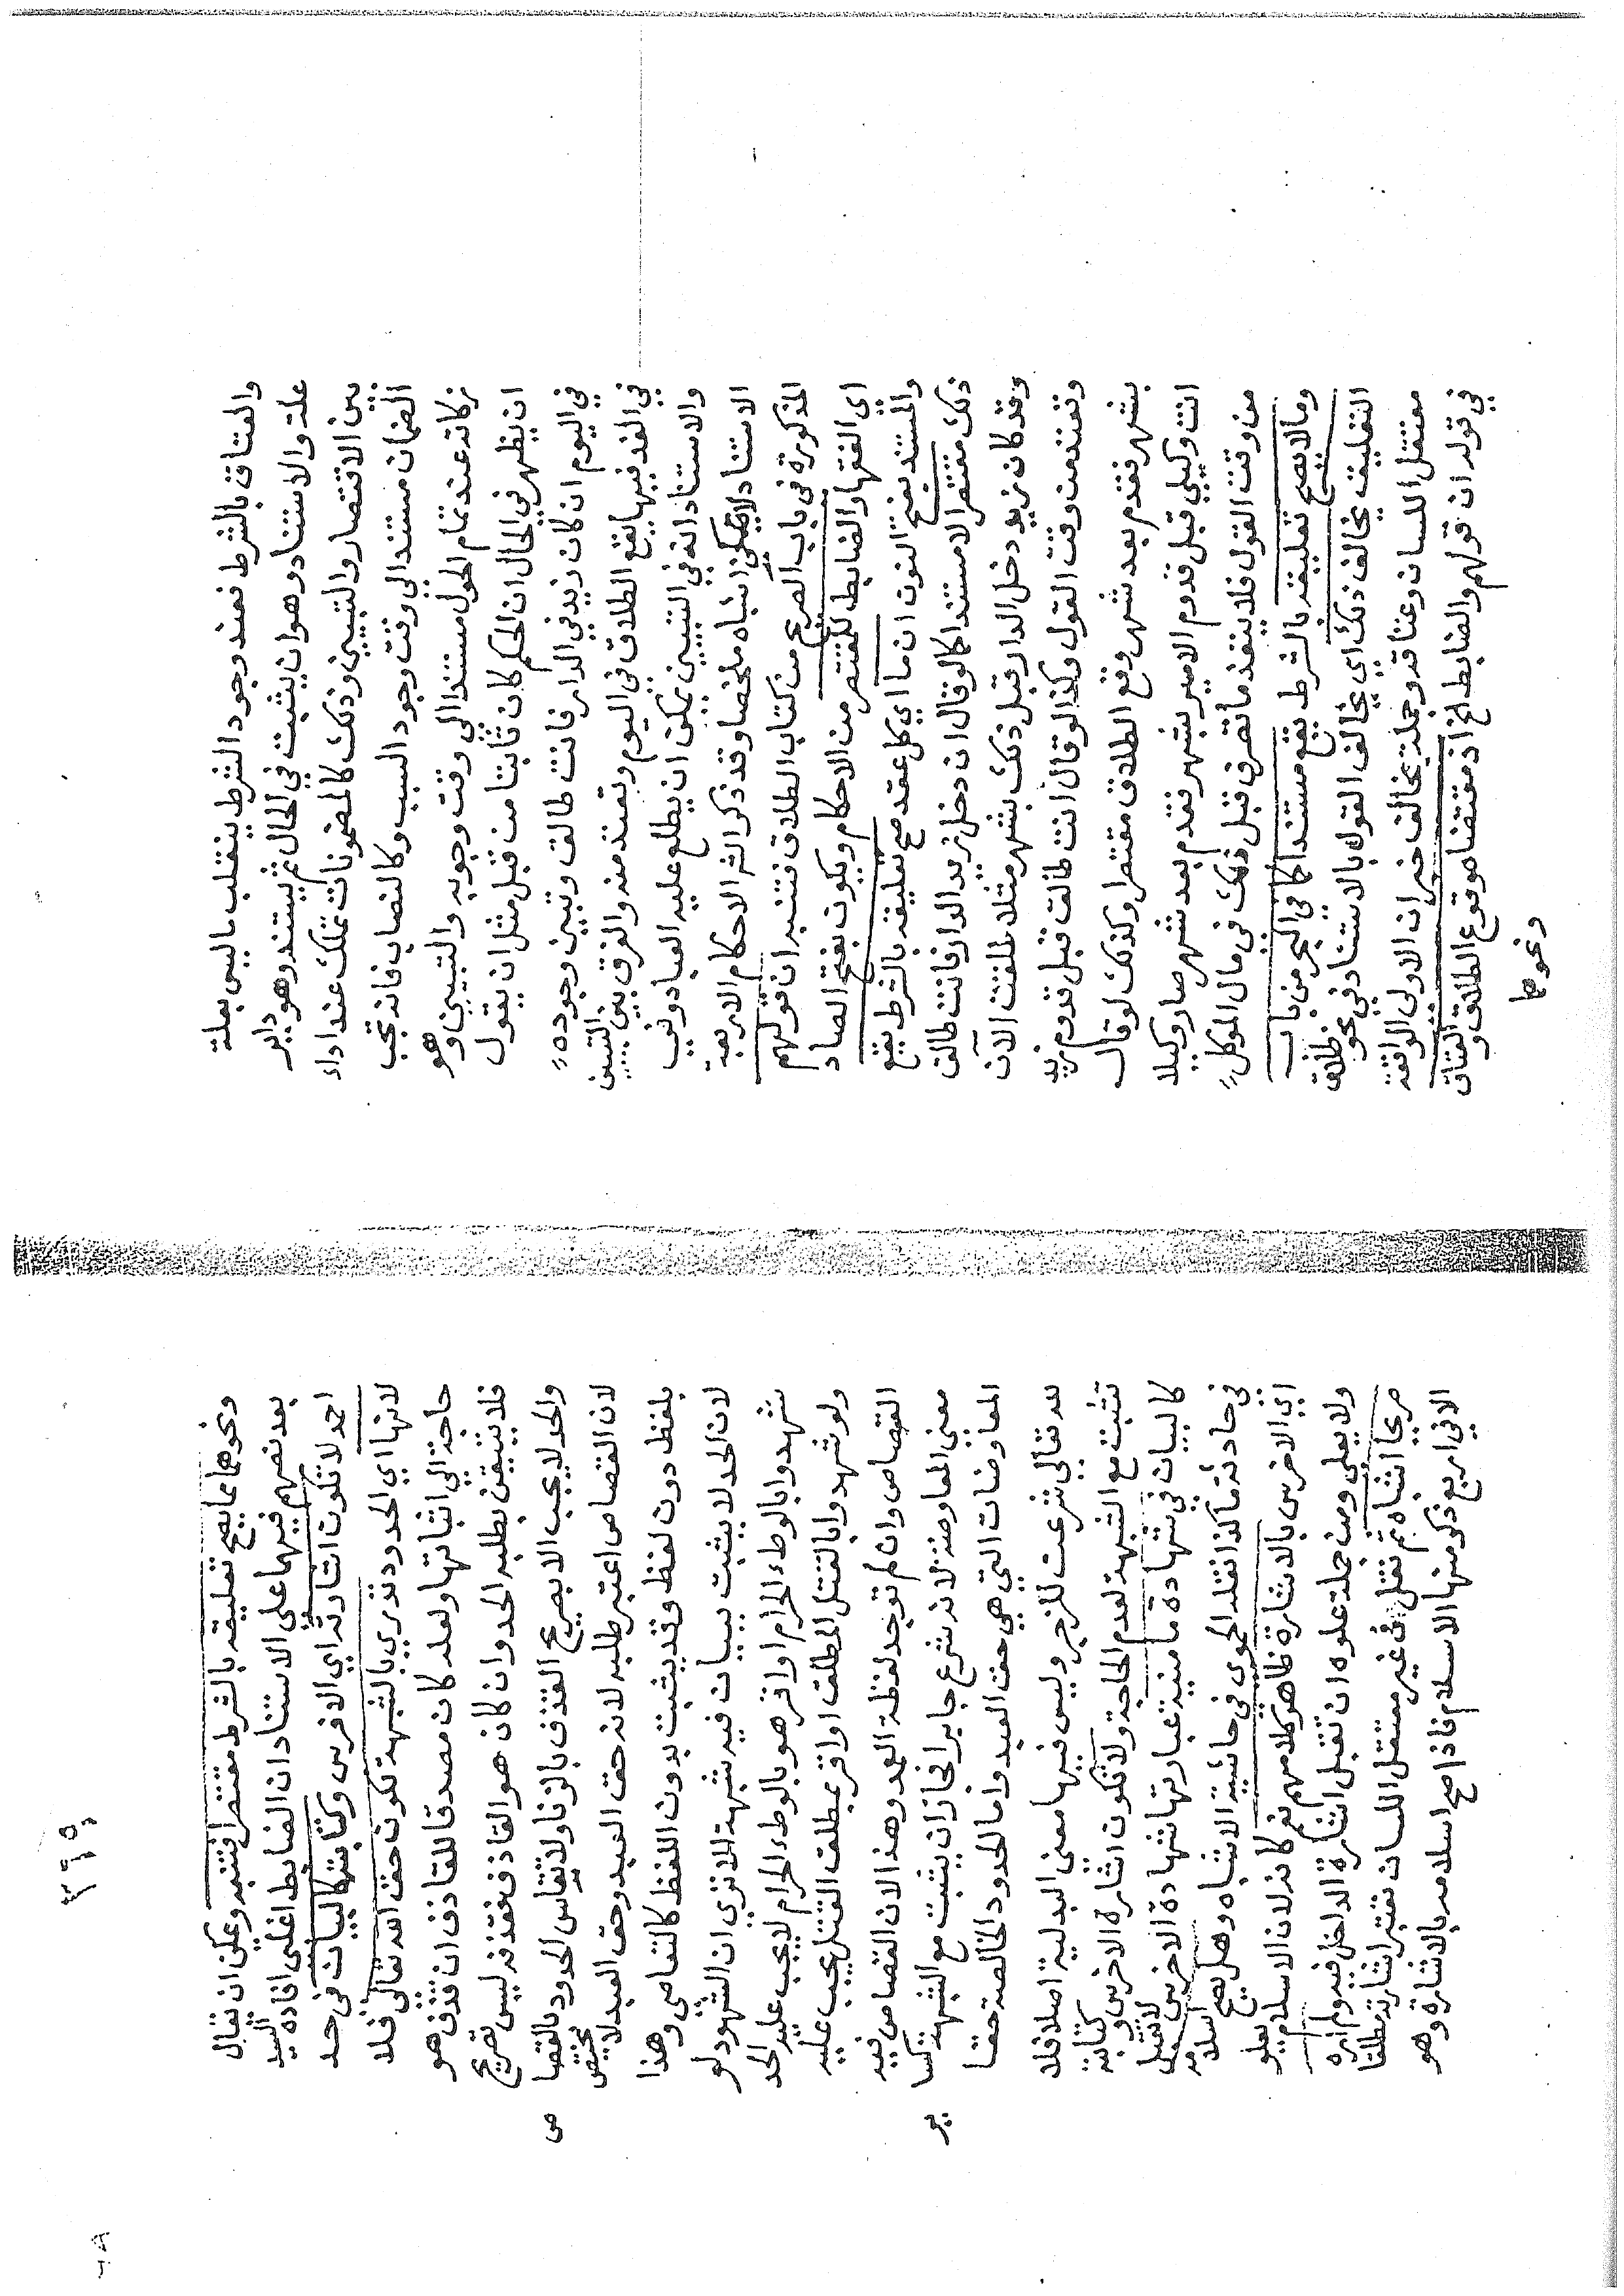 والعتاق بالشرط فعند وجود الشرط ينقلب ما ليس بعلة
علة والاستناد وهو ان يثبت في الحال ثم يستند وهو داير
بين الاقتصار والتبيين وذلك كالمضمونات تملك عند اداء
الضمان مستندا الي وقت وجود السبب وكالنصاب فانه تجب
زكاته عند تمام الحول مستندا الي وقت وجوبه والتبيين وهو
ان يظهر في الحال ان الحكم كان ثابتا من قبل مثل ان يقول
في اليوم ان كان زيد في الدار فانت طالق وتبين وجوده
في الغد فيها يقع الطلاق في اليوم وتعتد منه والفرق بين التبيين
والاستناد ان في التبيين يمكن ان يطلع عليه العباد وفي
الاستناد لا يمكن اشباه ملخصا وقد ذكر الاحكام الاربعة
المذكورة في باب الصريح من كتاب الطلاق فتنبه ان قولهم
اي الفقها والضابط للمقتصر من الاحكام ويكون بفتح الصاد
والمستند بفتح النون ان ما اي كل عقد صح تعليقه بالشرط يقع
ذلك مقتصرا لا مستندا كما لو قال ان دخل زيد الدار فانت طالق
وقد كان زيد دخل الدار قبل ذلك بشهر مثلا طلقت الان
وتعتد من وقت القول وكذا لو قال انت طالق قبل قدوم زيد
بشهر فقدم بعد شهر وقع الطلاق مقتصرا وكذلك لو قال
انت وكيلي قبل قدوم الامير بشهر فقدم بعد شهر صار وكيلا
من وقت القول فلا ينفذ ما تصرف قبل ذلك في مال الموكل
وما لا يصح تعليقه بالشرط يقع مستندا كما في البحر من باب
التعليق يخالف ذلك اي يخالف القول بالاستناد في نحو طلاق
معتقل اللسان وعتاقه وجملة يخالف خبر ان الاولى الواقعة
في قوله ان قولهم والضابط الخ اذ مقتضاه وقوع الطلاق والعتاق
ونحوهما
٣٦٩
ونحوهما مما يصح تعليقه بالشرط مقتصرا فتنبه ويمكن ان يقال
بعد نصهم فيها على الاستناد ان الضابط اغلبي افاده السيد
احمد لا تكون اشارته اي الاخرس وكتابته كالبيان في حد
لانها اي الحدود تدري بالشبهة تكون حق الله تعالى فلا
حاجة الي اثباتها ولعله كان مصدقا للقاذف ان قذف هو
فلا يتيقن بطلبه الحد وان كان هو القاذف فقذفه ليس بصريح
والحد لا يجب الا بصريح القذف بالزنا ولا تقاس الحدود بالقصاص
لان القصاص اعتبر طلبه لانه حق العبد وحق العبد لا يختص
بلفظ دون لفظ وقد يثبت بدون اللفظ كالتعاطي وهذا
لان الحد لا يثبت ببيان فيه شبهة الا تري ان الشهود لو
شهدوا بالوطء الحرام او اقر هو بالوطء الحرام لا يجب عليه الحد
ولو شهدوا بالقتل المطلق او اقر بمطلق القتل يجب عليه
القصاص وان لم توجد لفظة العمد وهذا لان القصاص فيه
معنى المعاوضة لانه شرع جابرا فجاز ان يثبت مع الشبهة كسائر
المعاوضات التي هي حق العبد واما الحدود الخالصة حقا
لله تعالى شرعت للزجر وليس فيها معنى البدلية اصلا فلا
تثبت مع الشبهة لعدم الحاجة ولا تكون اشارة الاخرس وكتابته
كالبيان في شهادة ما منية عبارتها شهادة الاخرس لا تقبل
في حادثة ما كذا نقله الحموي في حاشية الاشباه وهل يصح اسلامه
اي الاخرس بالاشارة ظاهر كلامهم نعم كانه لان الاسلام يعلو
ولا يعلى ومن جملة علوه ان تقبل اشارة الداخل فيه ولم اره
صريحا اشباه ثم نقل في غير معتقل اللسان تعتبر اشارته مطلقا
الا في اربع ذكر منها الاسلام فاذا صح اسلامه بالاشارة وهو